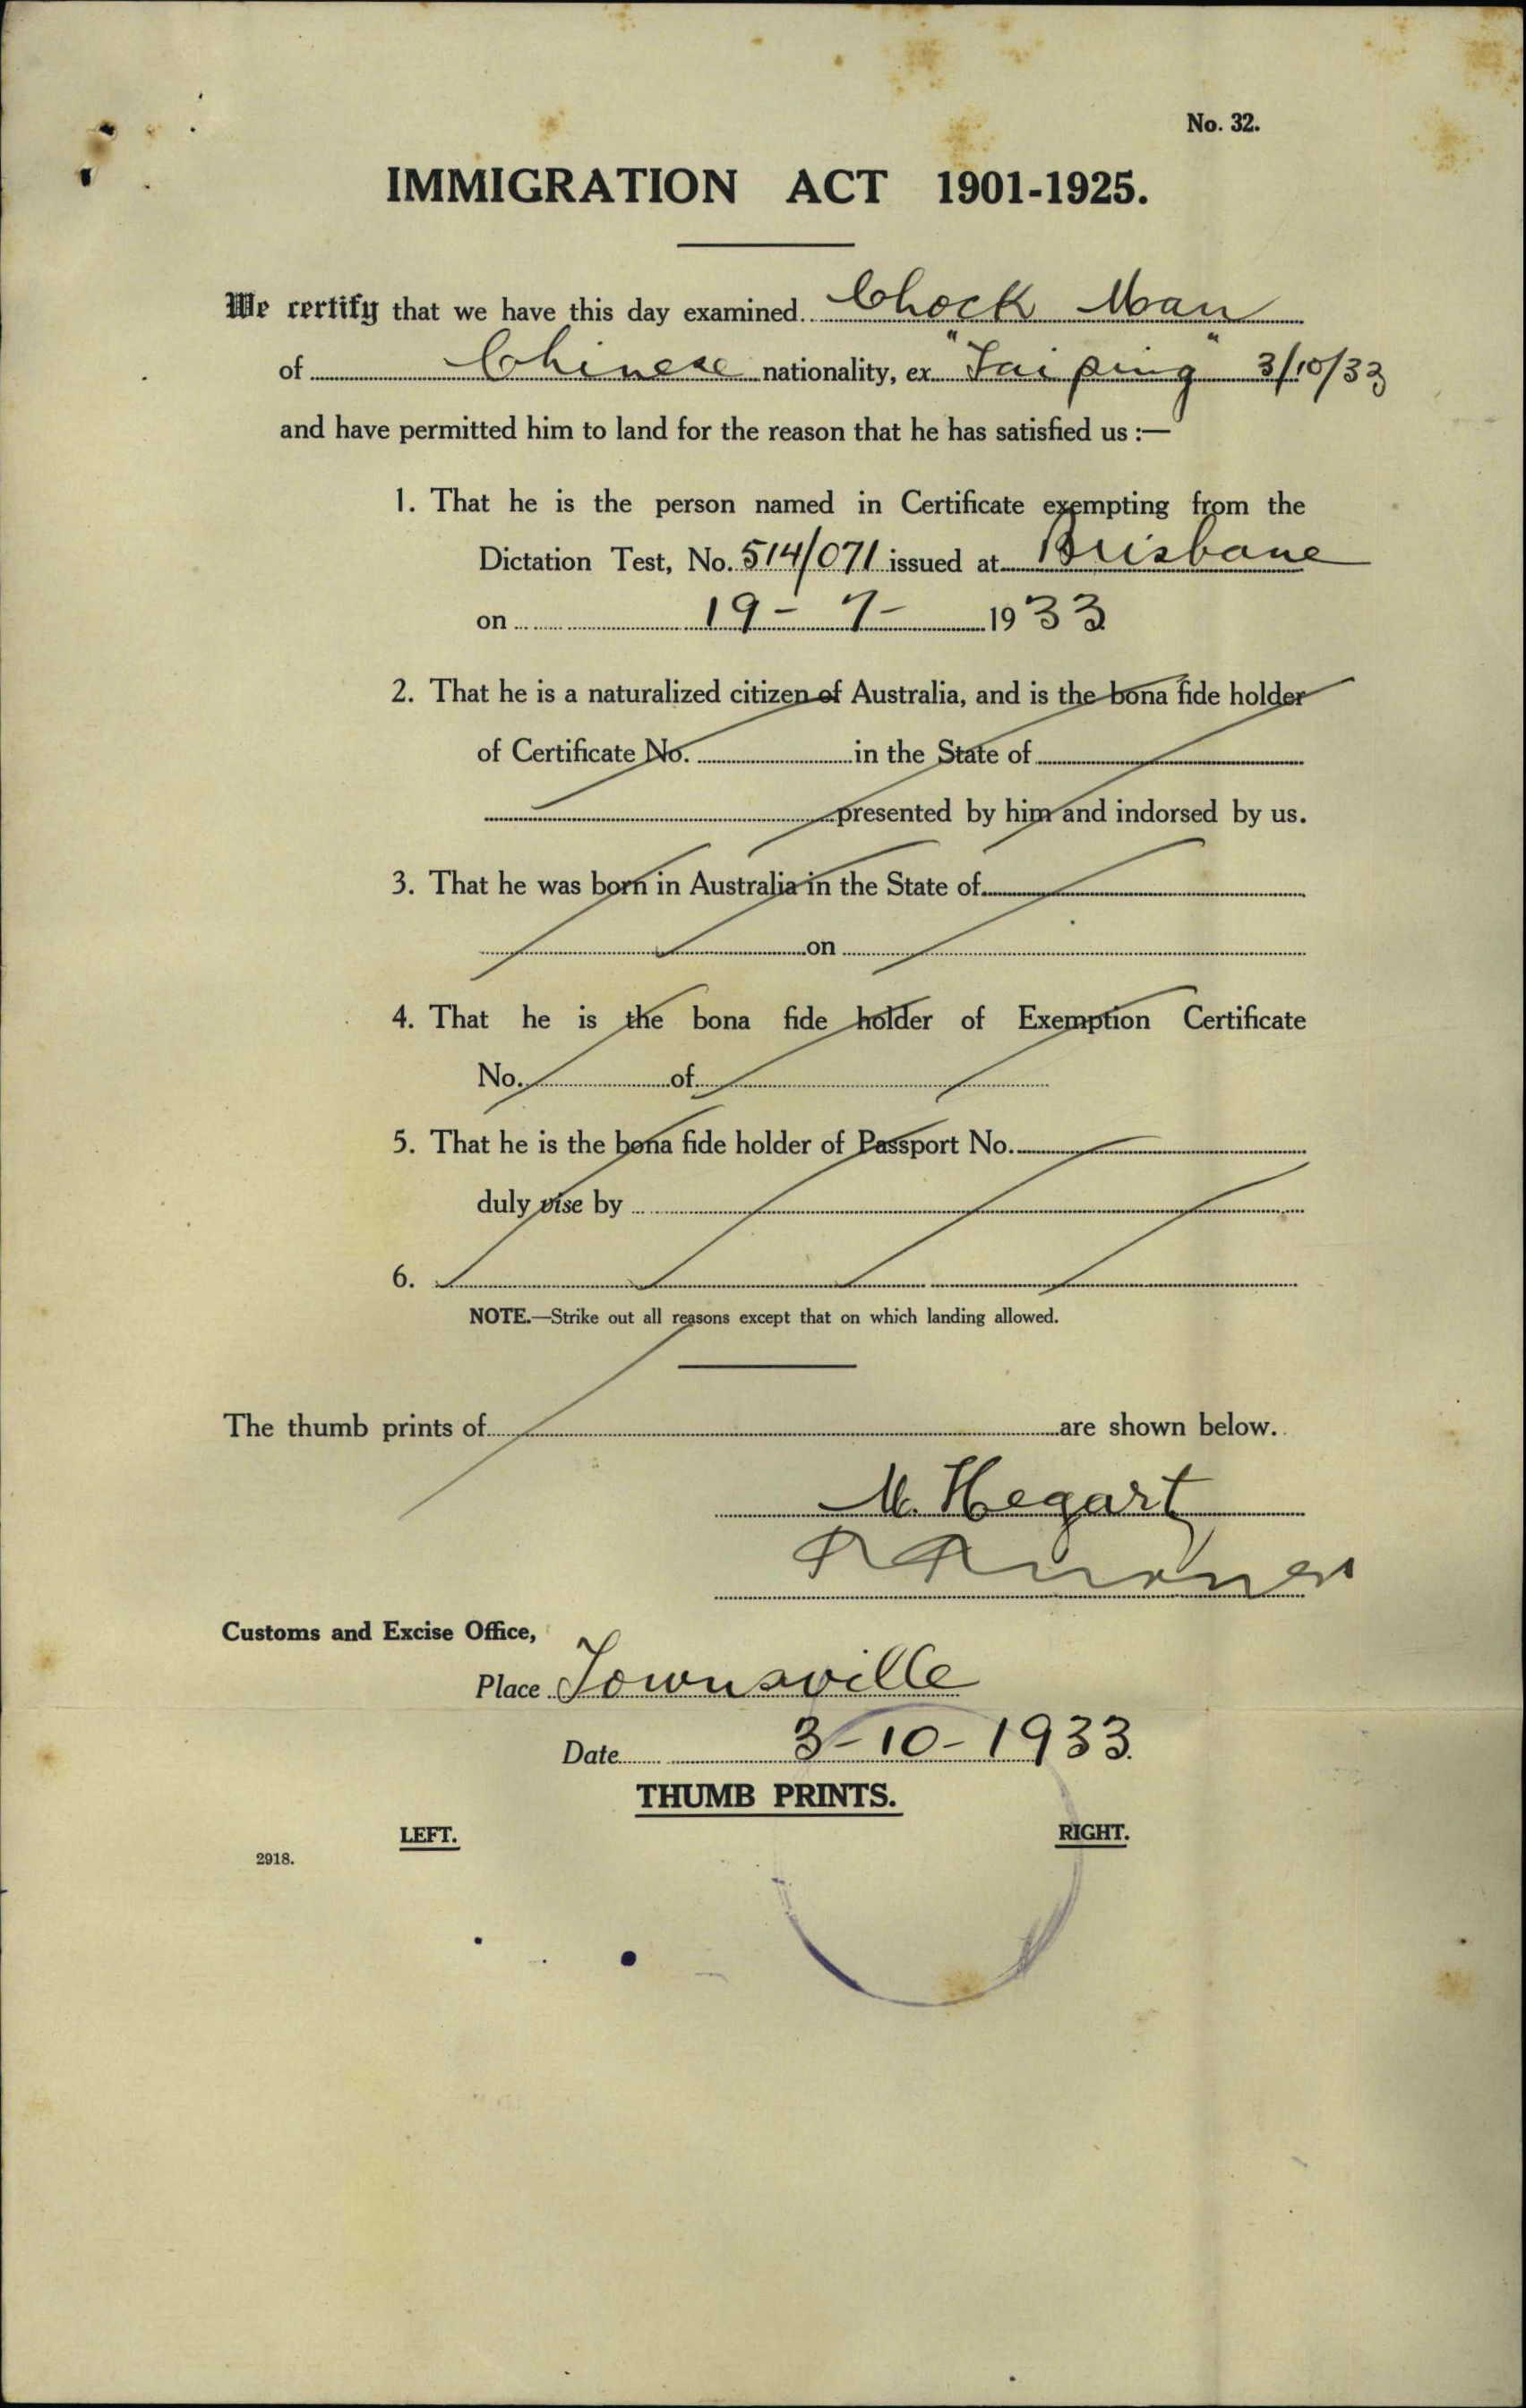 No. 32.
IMMIGRATION ACT 1901-1925.
We certify that we have this day examined Chock Man
of Chinese nationality, ex "Taiping" 3/10/33
and have permitted him to land for the reason that he has satisfied us :—
1. That he is the person named in Certificate exempting from the
Dictation Test, No. 514/071 issued at Brisbane
on 19-7-1933
2. That he is a naturalized citizen of Australia, and is the bona fide holder
of Certificate No. in the State of
presented by him and indorsed by us.
3. That he was born in Australia in the State of
on
4. That he is the bona fide holder of Exemption Certificate
No. of
5. That he is the bona fide holder of Passport No.
duly vise by
6.
NOTE.—Strike out all reasons except that on which landing allowed.
The thumb prints of are shown below.
M. Hegart
Customs and Excise Office,
Place Townsville
Date 3-10-1933.
THUMB PRINTS.
LEFT. RIGHT.
2918.